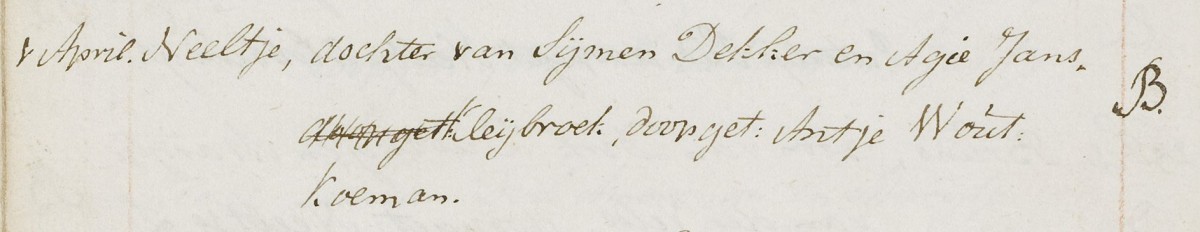 April. Neeltje, dochter van Sijmen Dekker en Agie Jans.
Kleijbroek, doopget: Antje Wout:
Koeman.
B.